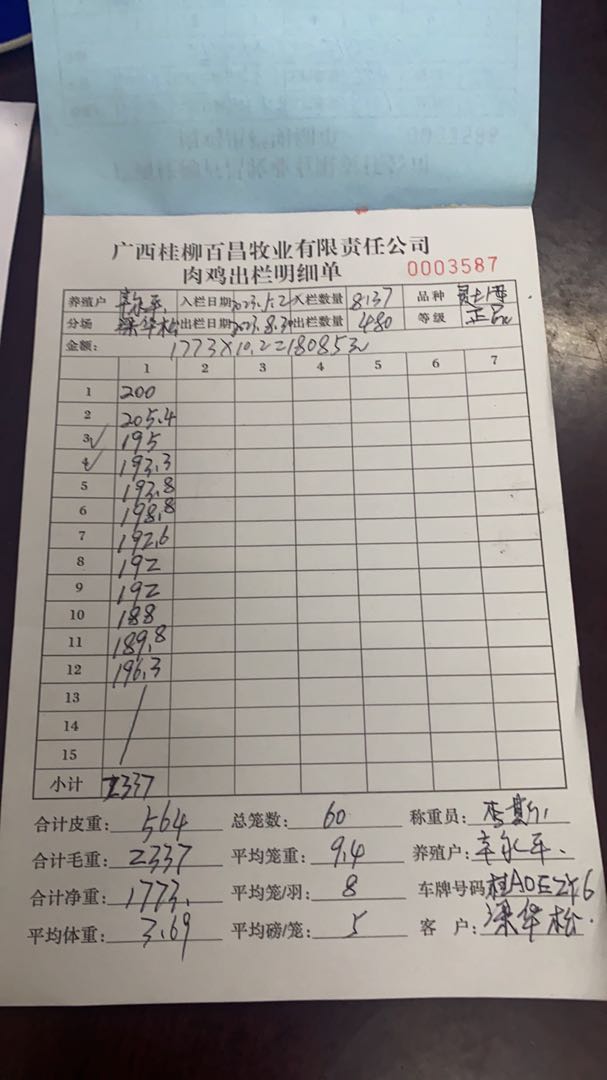 广西桂柳百昌牧业有限责任公司
肉鸡出栏明细单 0003587
养殖户 入栏日期 2023.5.2 入栏数量 8137 品种
分场 梁华松 出栏日期 2023.8.30 出栏数量 480 等级 正品
金额: 1773×10.2=18085元
1 2 3 4 5 6 7
1 200
2 205.4
3 195
4 193.3
5 193.8
6 198.8
7 192.6
8 192
9 192
10 188
11 189.8
12 196.3
13
14
15
小计 2337
合计皮重: 564 总笼数: 60 称重员:
合计毛重: 2337 平均笼重: 9.4 养殖户:
合计净重: 1773. 平均笼/羽: 8 车牌号码
平均体重: 3.69 平均磅/笼: 5 客 户: 梁华松.